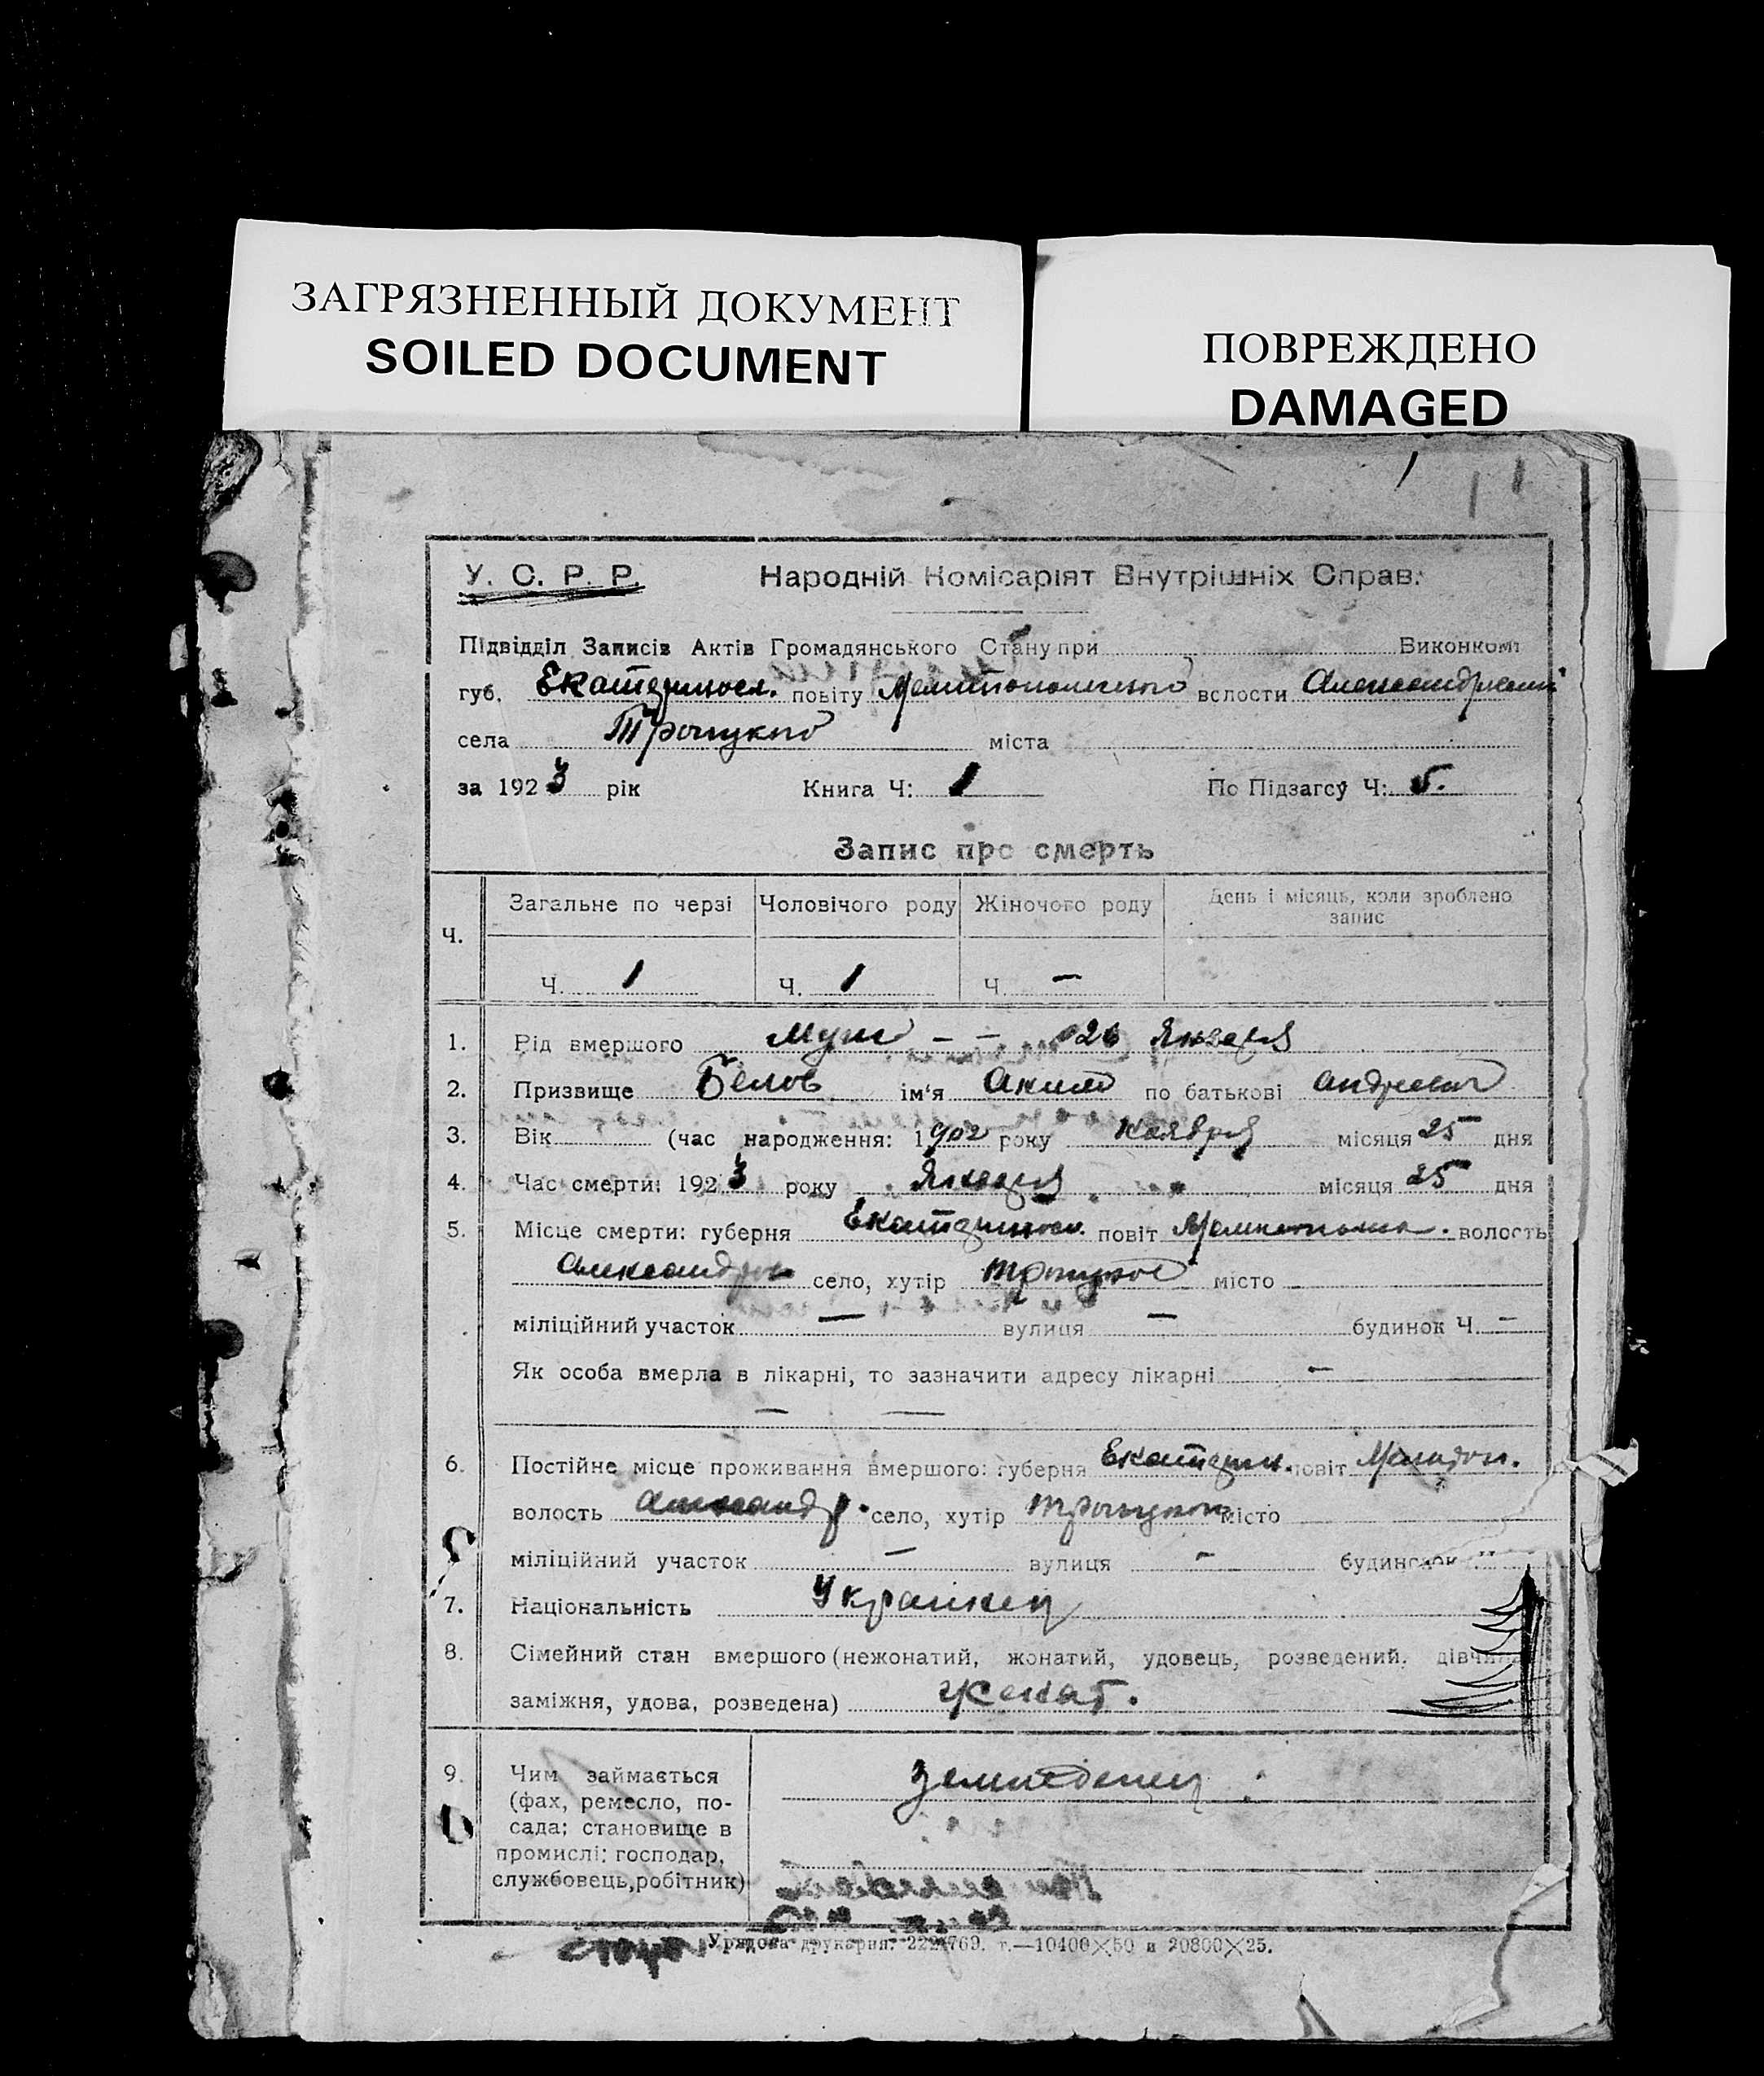 ЗАГРЯЗНЕННЫЙ ДОКУМЕНТ
SOILED DOCUMENT
ПОВРЕЖДЕНО
DAMAGED
У. С. Р. Р. Народній Комісаріят Внутрішніх Справ.
Підвідділ Записів Актів Громадянського Стану при Виконкомі
губ. Екатериносл. повіту Мелитопольского волости
села Троицкого міста
за 1923 рік Книга Ч: 1 По Підзагсу Ч: 5.
Запис про смерть
Ч. Загальне по черзі Чоловічого роду Жіночого роду День і місяць, коли зроблено
запис
Ч. 1 Ч. 1 Ч. —
1. Рід вмершого Муж — — 26 Января
2. Призвище Белов ім'я Аким по батькові Андреевич
3. Вік (час народження: 1902 року Ноября місяця 25 дня
4. Час смерти: 1923 року Января місяця 25 дня
5. Місце смерти: губерня Екатериносл. повіт волость
Александров село, хутір Троицкое місто
міліційний участок — вулиця — будинок Ч. —
Як особа вмерла в лікарні, то зазначити адресу лікарні —
— —
6. Постійне місце проживання вмершого: губерня Екатерин. повіт Мелитоп.
волость Александр. село, хутір Троицкое місто
міліційний участок — вулиця - будинок
7. Національність Украинец
8. Сімейний стан вмершого (нежонатий, жонатий, удовець, розведений, дівчина
заміжня, удова, розведена) Женат.
9. Чим займається Земледелец
(фах, ремесло, по-
сада; становище в
промислі: господар,
службовець, робітник)
Урядова друкарня. 222/769. т.—10400×50 и 20800×25.